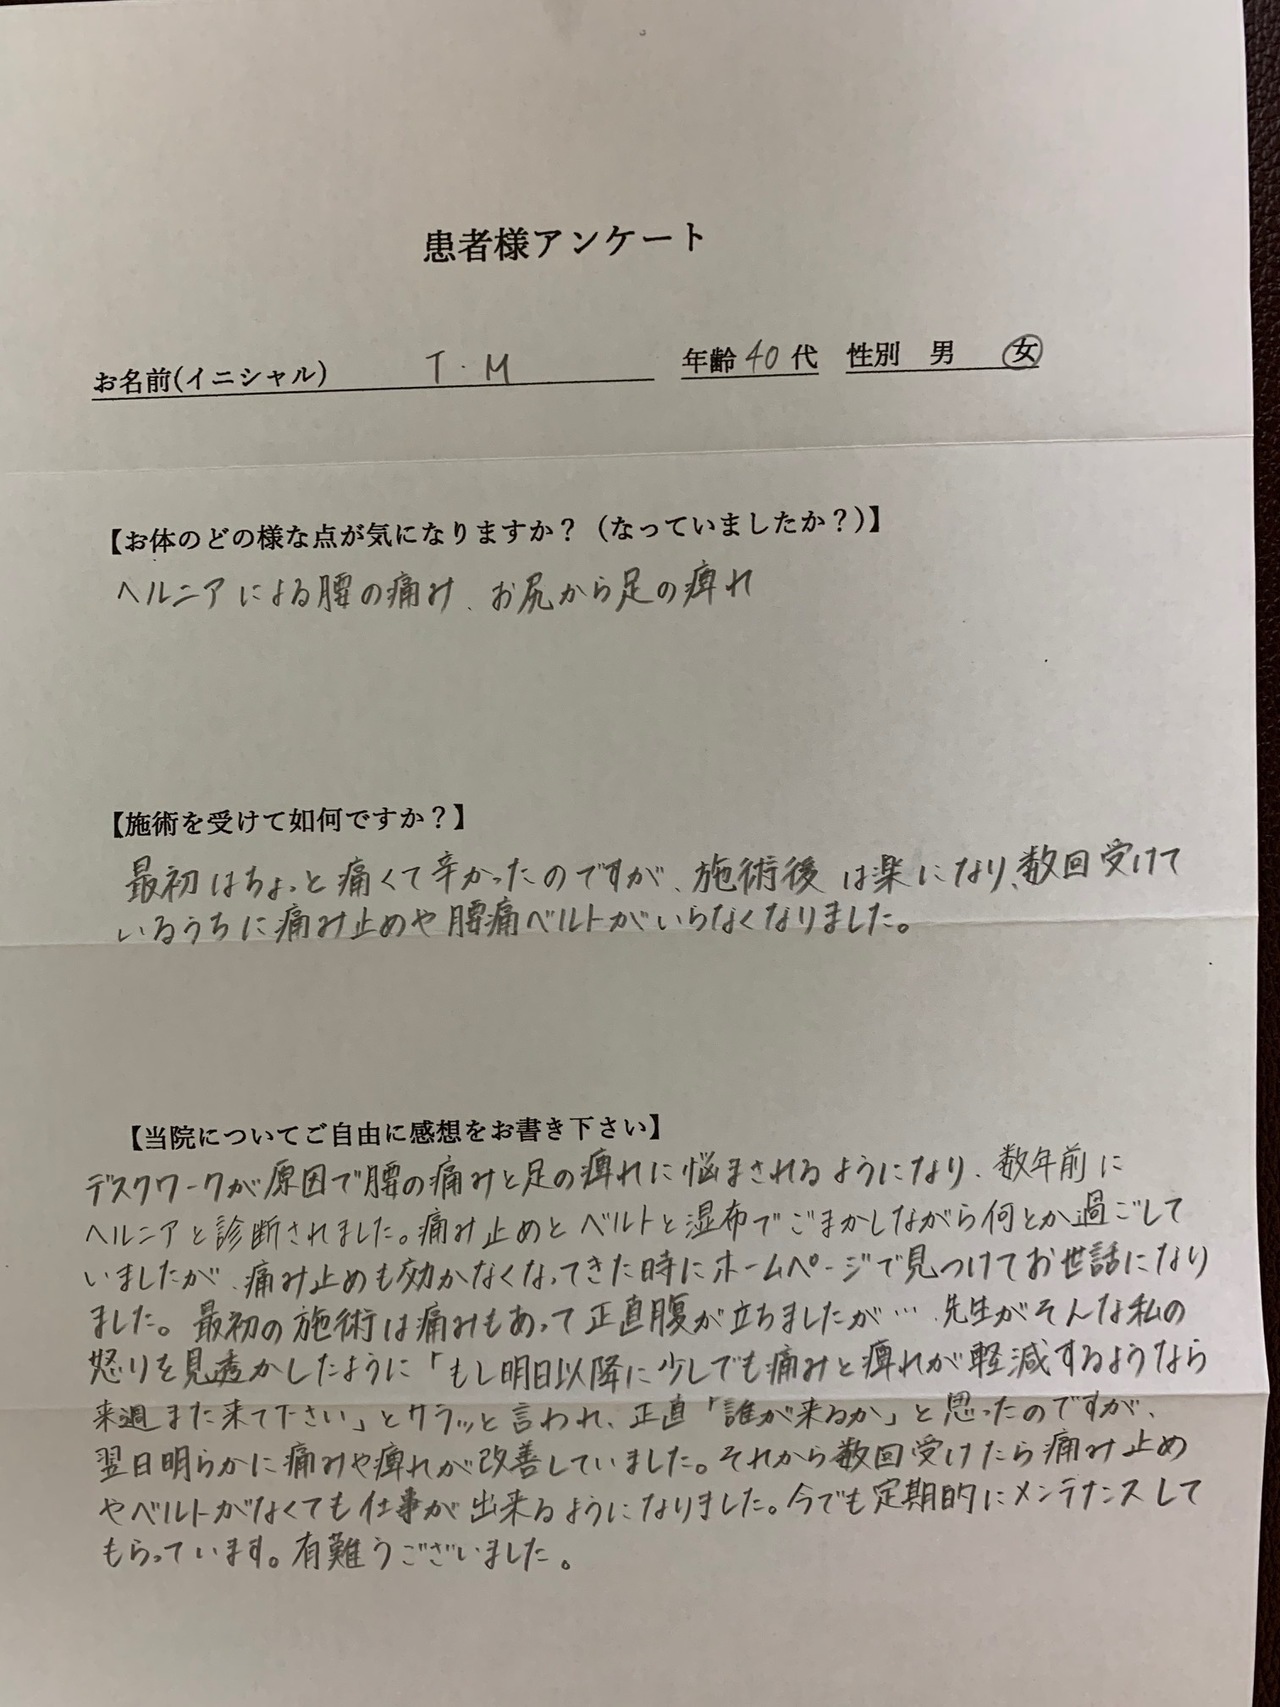 患者様アンケート
お名前(イニシャル) T.M 年齢 40 代 性別 男 女
【お体のどの様な点が気になりますか？（なっていましたか？）】
ヘルニアによる腰の痛み、お尻から足の痺れ
【施術を受けて如何ですか？】
最初はちょっと痛くて辛かったのですが、施術後は楽になり、数回受けて
いるうちに痛み止めや腰痛ベルトがいらなくなりました。
【当院についてご自由に感想をお書き下さい】
デスクワークが原因で腰の痛みと足の痺れに悩まされるようになり、数年前に
ヘルニアと診断されました。痛み止めとベルトと湿布でごまかしながら何とか過ごして
いましたが、痛み止めも効かなくなってきた時にホームページで見つけてお世話になり
ました。最初の施術は痛みもあって正直腹が立ちましたが… 先生がそんな私の
怒りを見透かしたように「もし明日以降に少しでも痛みと痺れが軽減するようなら
来週また来て下さい」とサラッと言われ、正直「誰が来るか」と思ったのですが、
翌日明らかに痛みや痺れが改善していました。それから数回受けたら痛み止め
やベルトがなくても仕事が出来るようになりました。今でも定期的にメンテナンスして
もらっています。有難うございました。